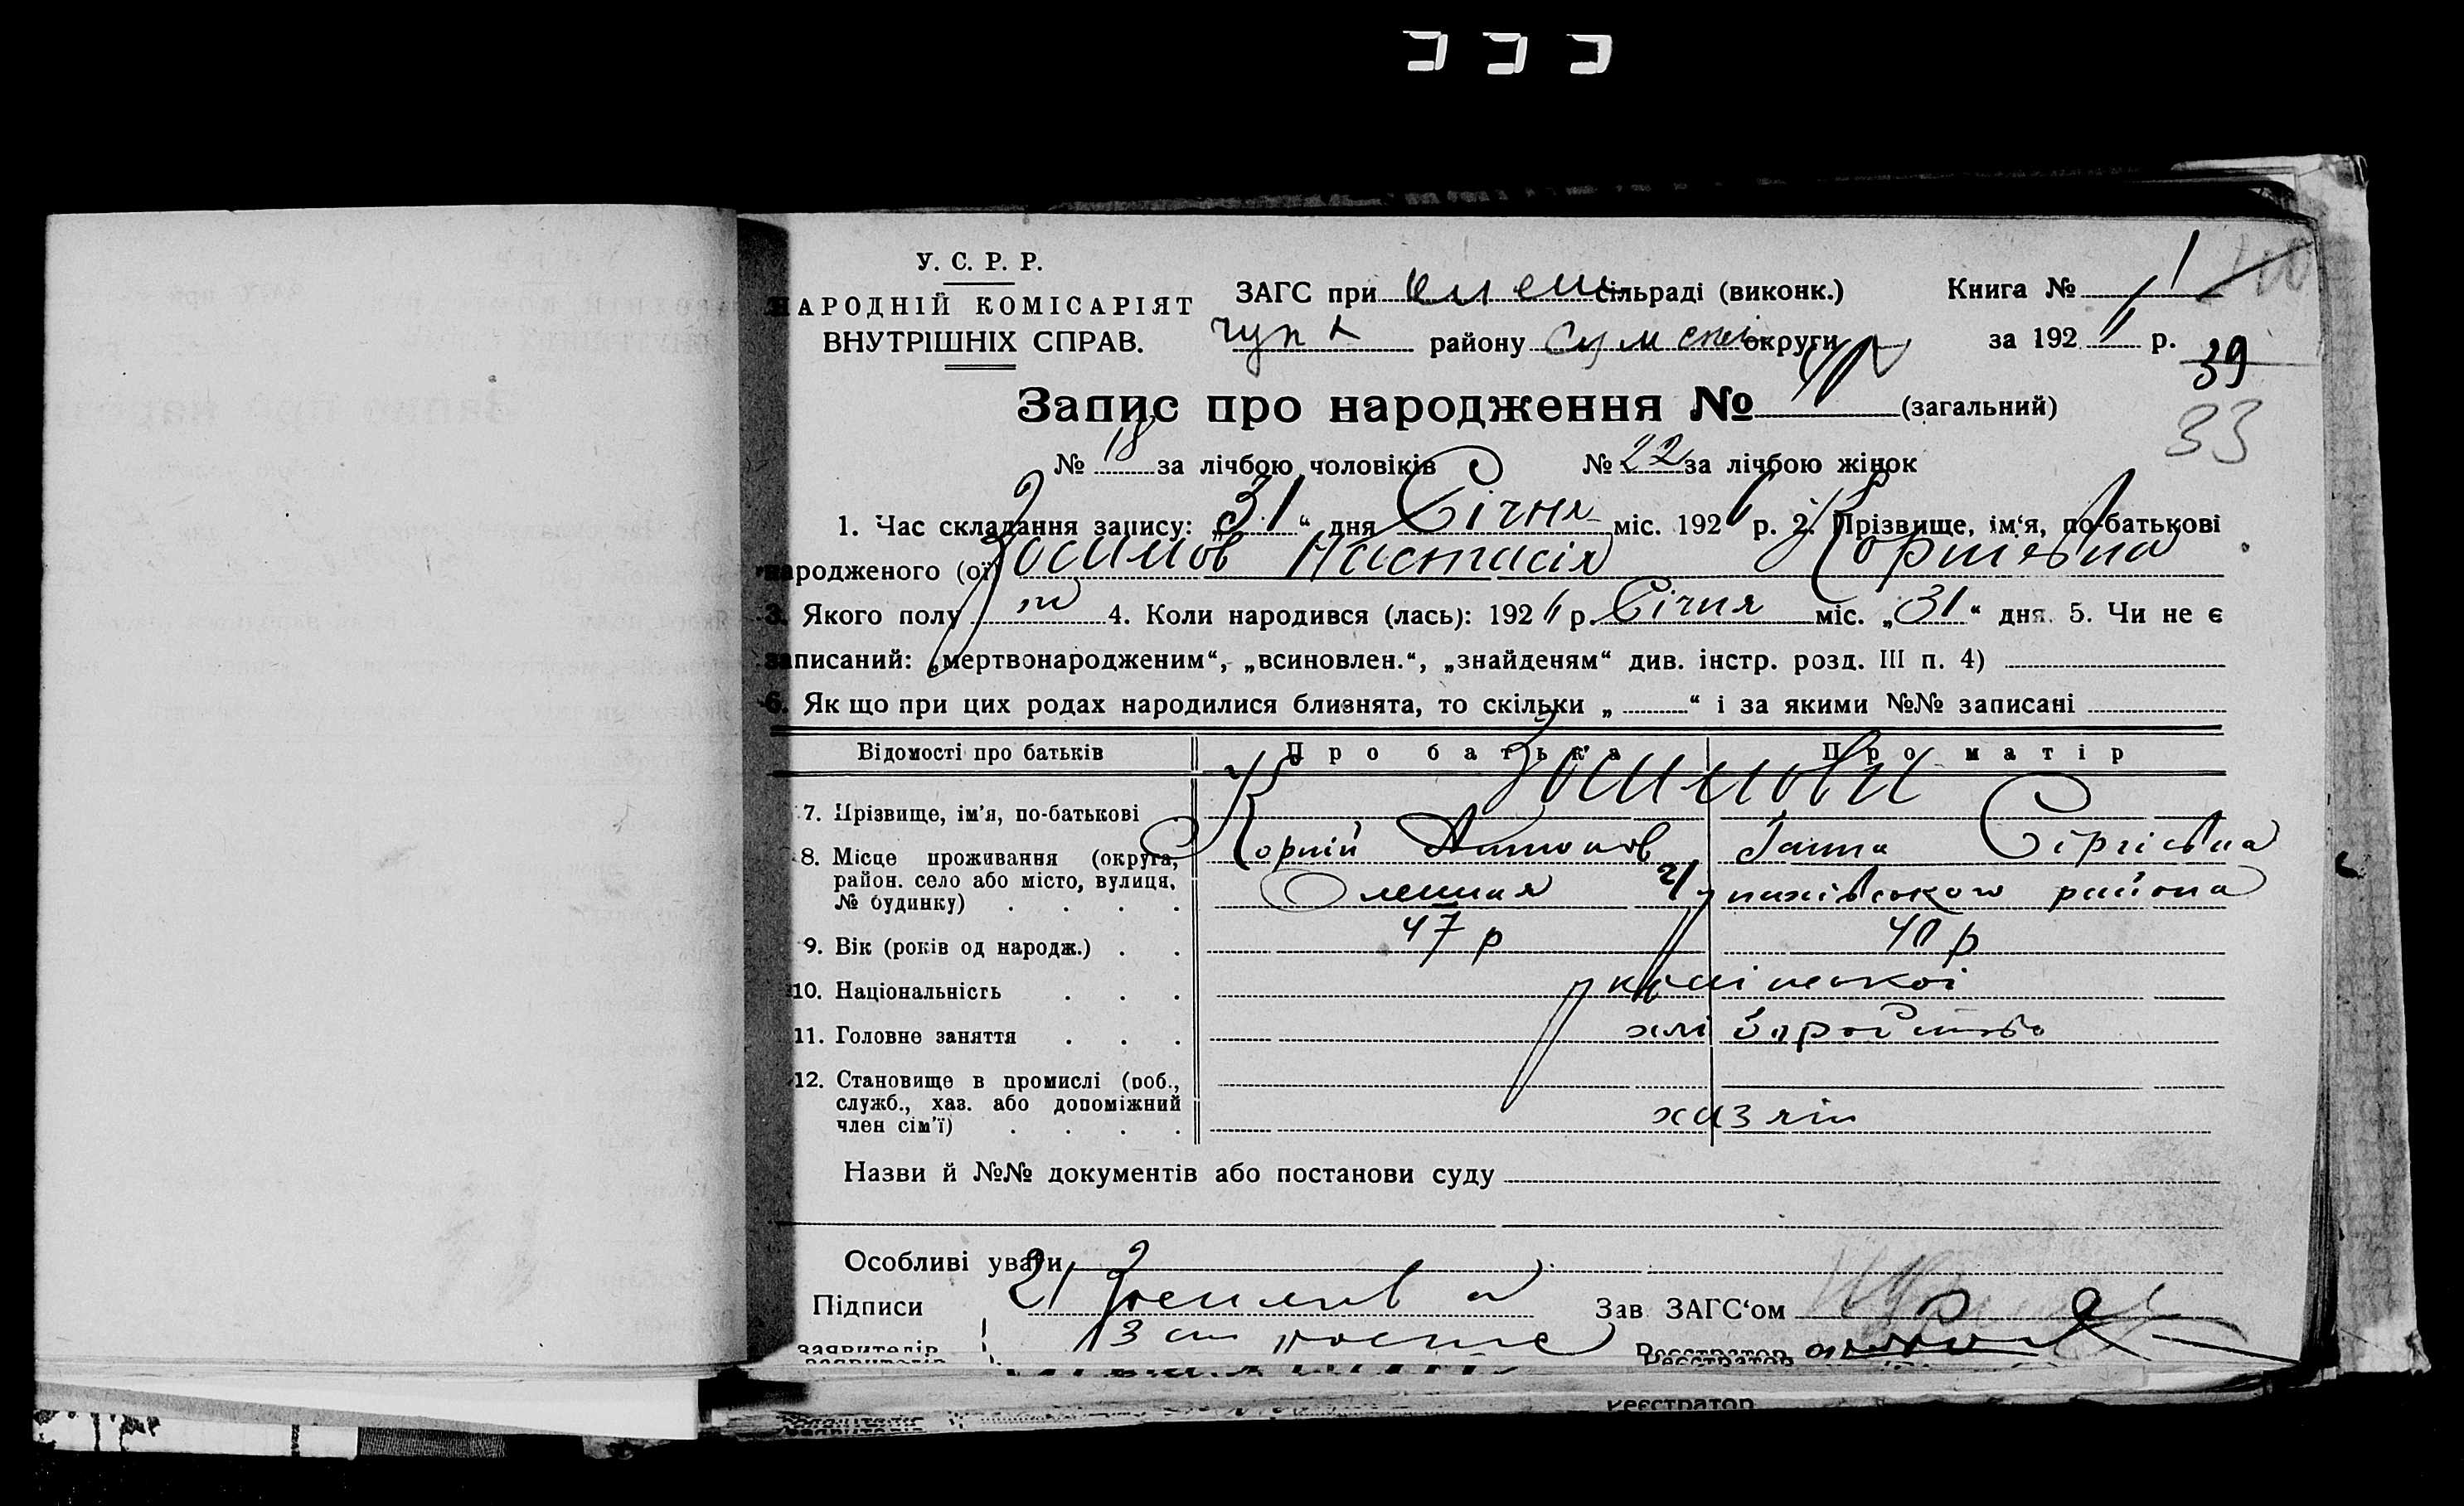 У. С. Р. Р.
НАРОДНІЙ КОМІСАРІЯТ
ВНУТРІШНІХ СПРАВ.
ЗАГС при олеш сільраді (виконк.)
чупх району Сумської округи
Книга № 1
за 192 р.
39
33
Запис про народження № (загальний)
№ 18 за лічбою чоловіків № 22 за лічбою жінок
1. Час складання запису: „31“ дня Січня міс. 192 р. 2. Прізвище, ім‘я, по-батькові
народженого (ої) Зосимов Настасія Корніевна
3. Якого полу ж 4. Коли народився (лась): 192 р. Січня міс. „31“ дня. 5. Чи не є
записаний: „мертвонародженим“, „всиновлен.“, „знайденям“ див. інстр. розд. III п. 4)
6. Як що при цих родах народилися близнята, то скільки „ “ і за якими №№ записані
Відомості про батьків Про батька Про матір
7. Прізвище, ім‘я, по-батькові Зосимови
Корній Антонов Ганна Сергієвна
8. Місце проживання (округа, район. село або місто, вулиця, № будинку) Олешня Чупахівського района
9. Вік (років од народж.) 47 р 40 р
10. Національність української
11. Головне заняття хліборобство
12. Становище в промислі (роб., служб., хаз. або допоміжний член сім‘ї) хазяін
Назви й №№ документів або постанови суду
Особливі уваги
Підписи Зосимов
заявителів
Зав ЗАГС‘ом
Реєстратор
Реєстратор